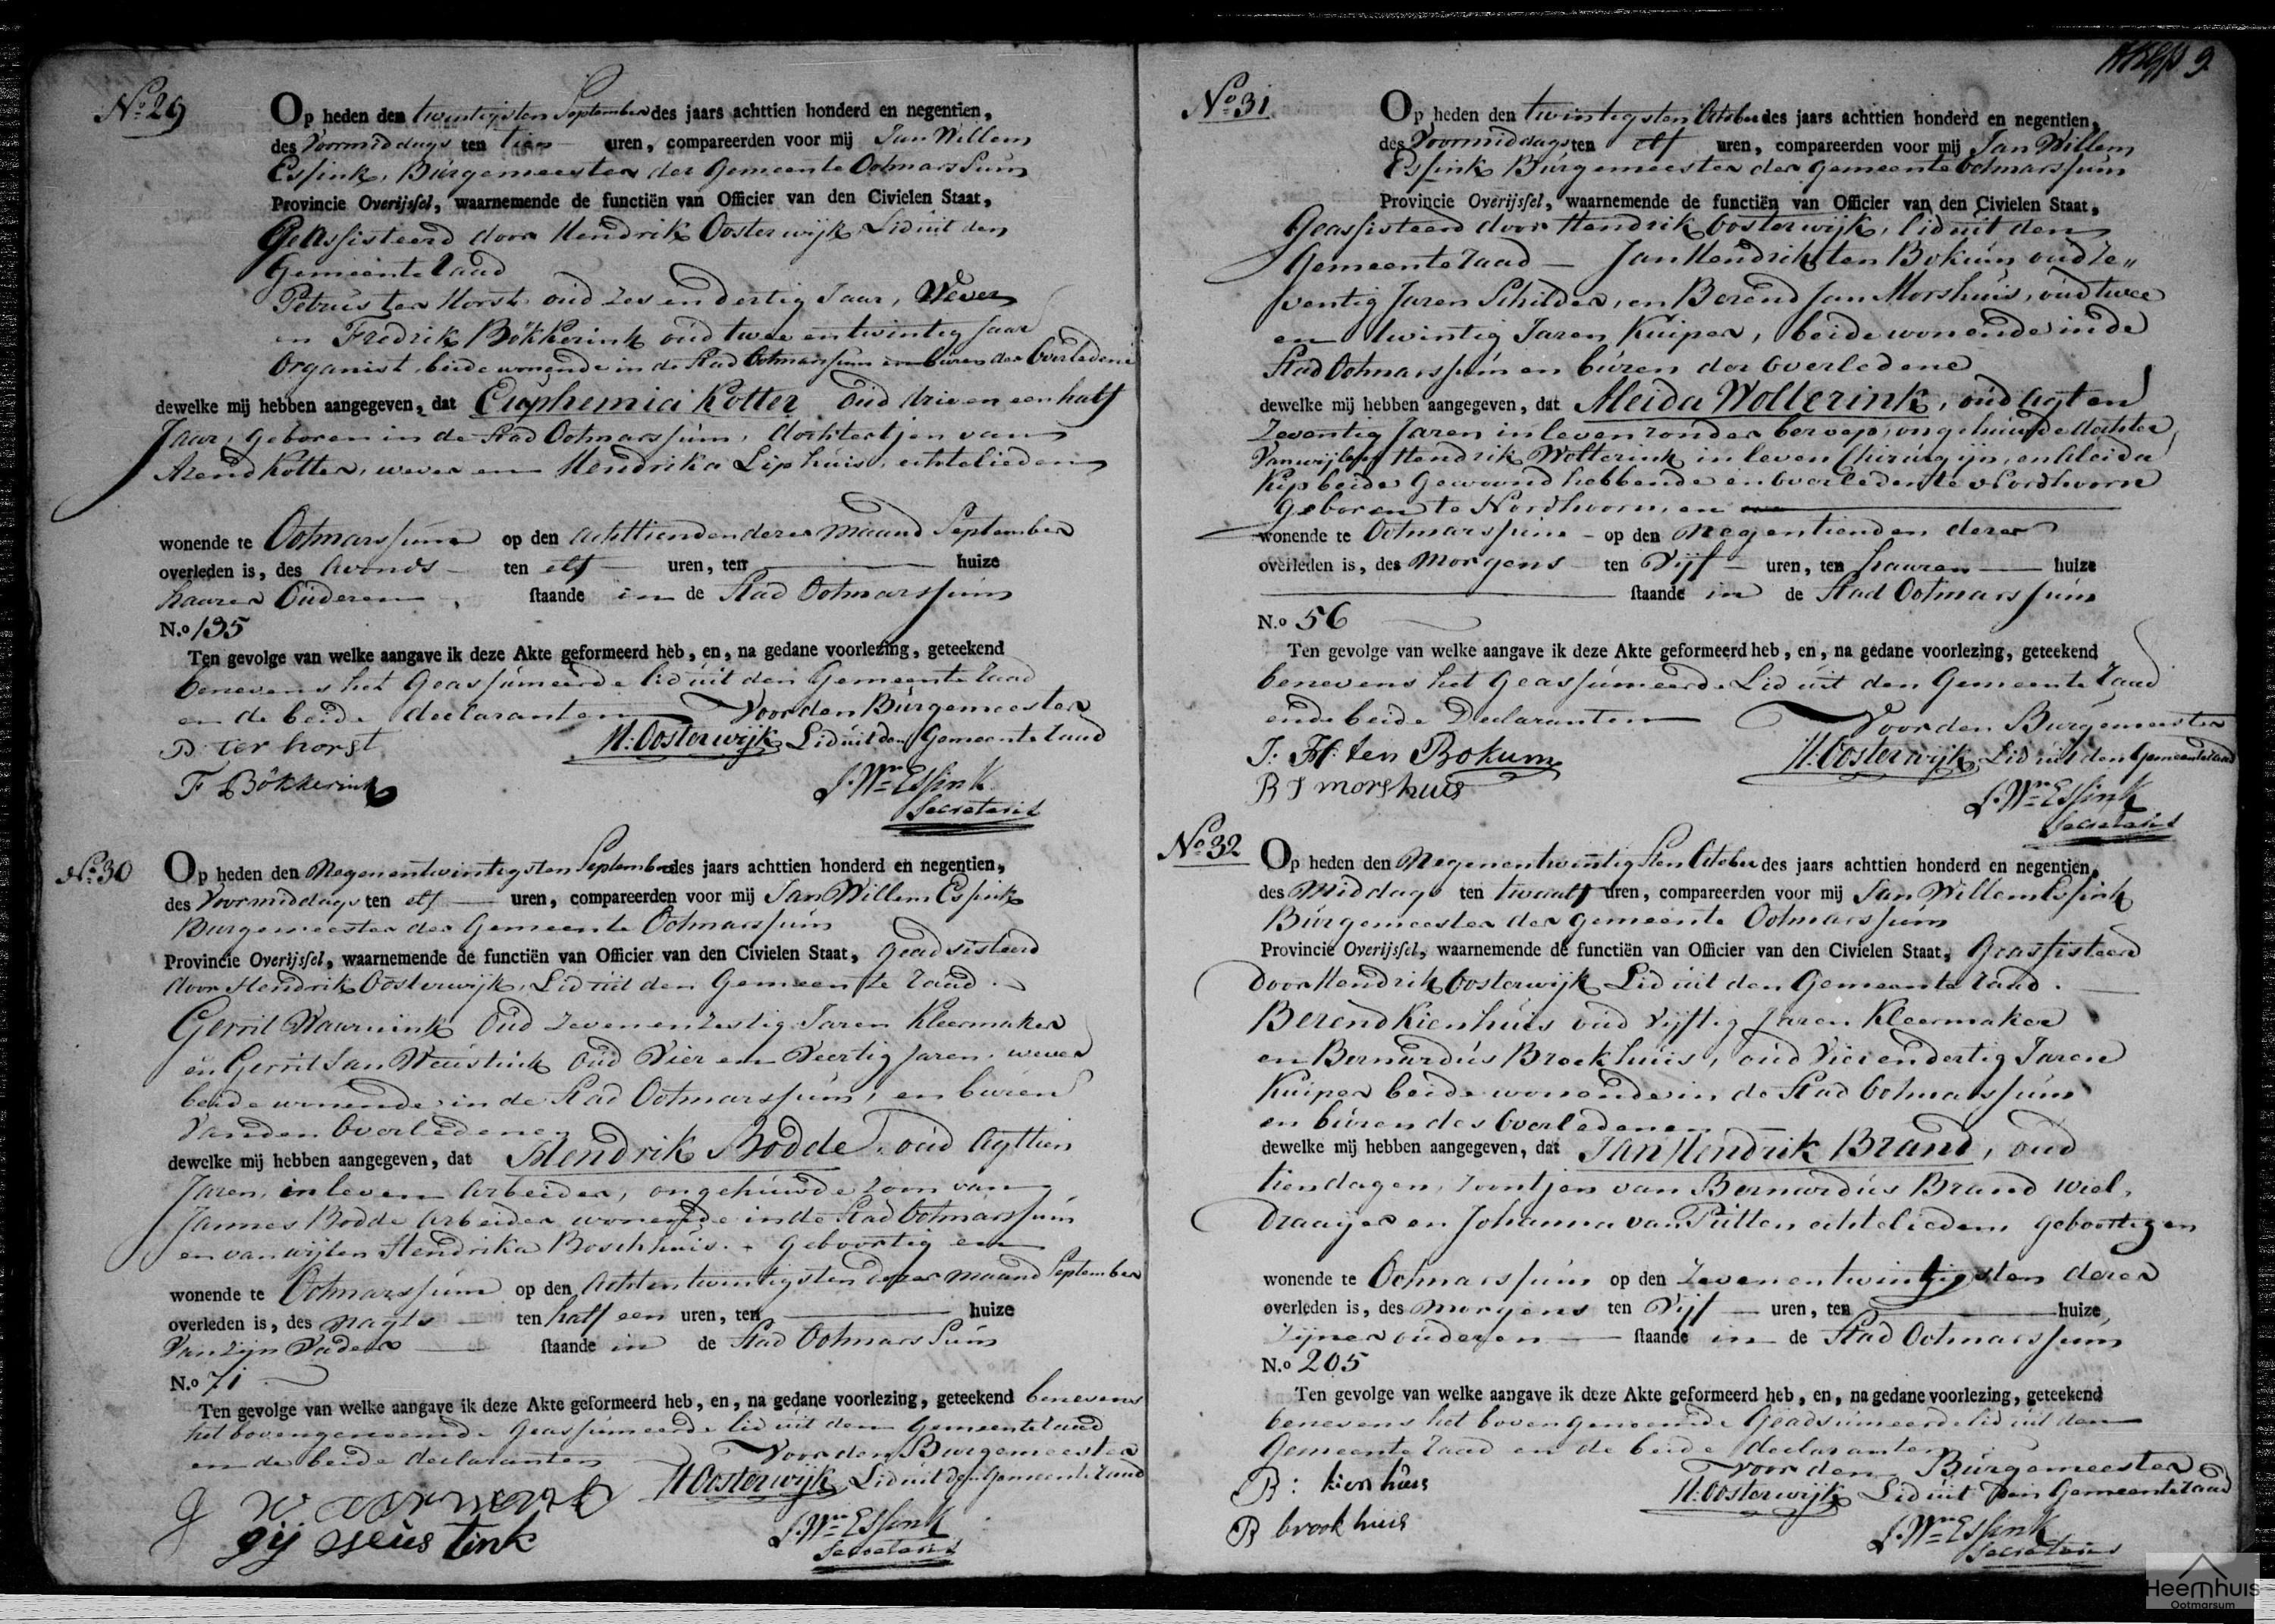 No. 29
Op heden den twintigsten September des jaars achttien honderd en negentien,
des Voormiddags ten tien uren, compareerden voor mij Jan Willem
Essink, Burgemeester der Gemeente Ootmarssum
Provincie Overijssel, waarnemende de functiën van Officier van den Civielen Staat,
Geassisteerd door Hendrik Oosterwijk Lid uit den
Gemeente Raad
Petrus ter Horst oud zes en dertig Jaar, Wever
en Fredrik Bökkerink oud twee en twintig Jaar
Organist beide wonende in de Stad Ootmarssum en buren der Overledene
dewelke mij hebben aangegeven, dat Euphemia Kotter oud drie en een half
Jaar, geboren in de Stad Ootmarssum, dochtertjen van
Arend Kotter, wever en Hendrika Liphuis, echtelieden
wonende te Ootmarssum op den achttienden dezer maand September
overleden is, des Avonds ten elf uren, ten huize
haarer Ouderen staande in de Stad Ootmarssum
N.o 195
Ten gevolge van welke aangave ik deze Akte geformeerd heb, en, na gedane voorlezing, geteekend
benevens het Geassumeerde lid uit den Gemeente Raad
en de beide declaranten Voor den Burgemeester
P: ter horst H: Oosterwijk Lid uit den Gemeente Raad
F Bökkerink J. Wm Essink
Secretaris
No. 30
Op heden den Negenentwintigsten September des jaars achttien honderd en negentien,
des Voormiddags ten elf uren, compareerden voor mij Jan Willem Essink
Burgemeester der Gemeente Ootmarssum
Provincie Overijssel, waarnemende de functiën van Officier van den Civielen Staat, geadsisteerd
door Hendrik Oosterwijk, Lid uit den Gemeente Raad
Gerrit Waarnink Oud zevenenzestig Jaren Kleermaker
en Gerrit Jan Neustink Oud Vier en Veertig Jaren wever
beide wonende in de Stad Ootmarssum, en buren
Van den Overledenen
dewelke mij hebben aangegeven, dat Hendrik Bodde, oud Agttien
Jaren, in leven Arbeider, ongehuwde zoon van
Jannes Bodde Arbeider wonende in de Stad Ootmarssum
en van wijlen Hendrika Boschhuis. Geboortig en
wonende te Ootmarssum op den Achtentwintigsten dezer maand September
overleden is, des nagts ten half een uren, ten huize
Van zijn Vader staande in de Stad Ootmarssum
N.o 71
Ten gevolge van welke aangave ik deze Akte geformeerd heb, en, na gedane voorlezing, geteekend benevens
het bovengenoemde Geassumeerde lid uit den Gemeente Raad
en de beide declaranten Voor den Burgemeester
H Oosterwijk Lid uit den Gemeente Raad
G Waarnink
gij Neustink J. Wm Essink
Secretaris
9
No. 31
Op heden den twintigsten October des jaars achttien honderd en negentien,
des Voormiddags ten elf uren, compareerden voor mij Jan Willem
Essink Burgemeester der Gemeente Ootmarssum
Provincie Overijssel, waarnemende de functiën van Officier van den Civielen Staat,
Geassisteerd door Hendrik Oosterwijk, lid uit den
Gemeente Raad — Jan Hendrik ten Bokum oud Ze„
ventig Jaren Schilder, en Berend Jan Morshuis, oud twee
en twintig Jaren Kuiper, beide wonende in de
Stad Ootmarssum en buren der Overledene
dewelke mij hebben aangegeven, dat Aleida Wolterink, oud Agt en
Zeventig Jaren in leven zonder beroep, ongehuwde dochter,
van wijlen Hendrik Wolterink in leven Chirurgijn, en Aleida
Kip beide gewoond hebbende en overleden te Nordhoorn
geboren te Nordhoorn en
wonende te Ootmarssum op den Negentienden dezer
overleden is, des Morgens ten Vijf uren, ten haaren huize
staande in de Stad Ootmarssum
N.o 56
Ten gevolge van welke aangave ik deze Akte geformeerd heb, en, na gedane voorlezing, geteekend
benevens het Geassumeerde Lid uit den Gemeente Raad
en de beide Declaranten Voor den Burgemeester
J: H: ten Bokum H: Oosterwijk Lid uit den Gemeente Raad
B J morshuis J. Wm Essink
Secretaris
No. 32
Op heden den Negenentwintigsten October des jaars achttien honderd en negentien,
des Middags ten twaalf uren, compareerden voor mij Jan Willem Essink
Burgemeester der gemeente Ootmarssum
Provincie Overijssel, waarnemende de functiën van Officier van den Civielen Staat, Geassisteerd
door Hendrik Oosterwijk Lid uit den Gemeente Raad.
Berend Kienhuis oud Vijftig Jaren Kleermaker
en Bernardus Broekhuis, oud Vier en dertig Jaren
Kuiper beide wonende in de Stad Ootmarssum
en buren des Overledenen
dewelke mij hebben aangegeven, dat Jan Hendrik Brand, oud
tien dagen, zoontjen van Bernardus Brand Wiel,
draaijer en Johanna van Putten echtelieden geboortig en
wonende te Ootmarssum op den Zevenentwintigsten dezer
overleden is, des Morgens ten Vijf uren, ten huize
zijner ouderen staande in de Stad Ootmarssum
N.o 205
Ten gevolge van welke aangave ik deze Akte geformeerd heb, en, na gedane voorlezing, geteekend
benevens het boven genoemde Geadsumeerde lid uit den
Gemeente Raad en de beide declaranten
Voor den Burgemeester
B: kienhuis H: Oosterwijk Lid uit den Gemeente Raad
B brookhuis J. Wm Essink
Secretaris
Heemhuis
Ootmarsum